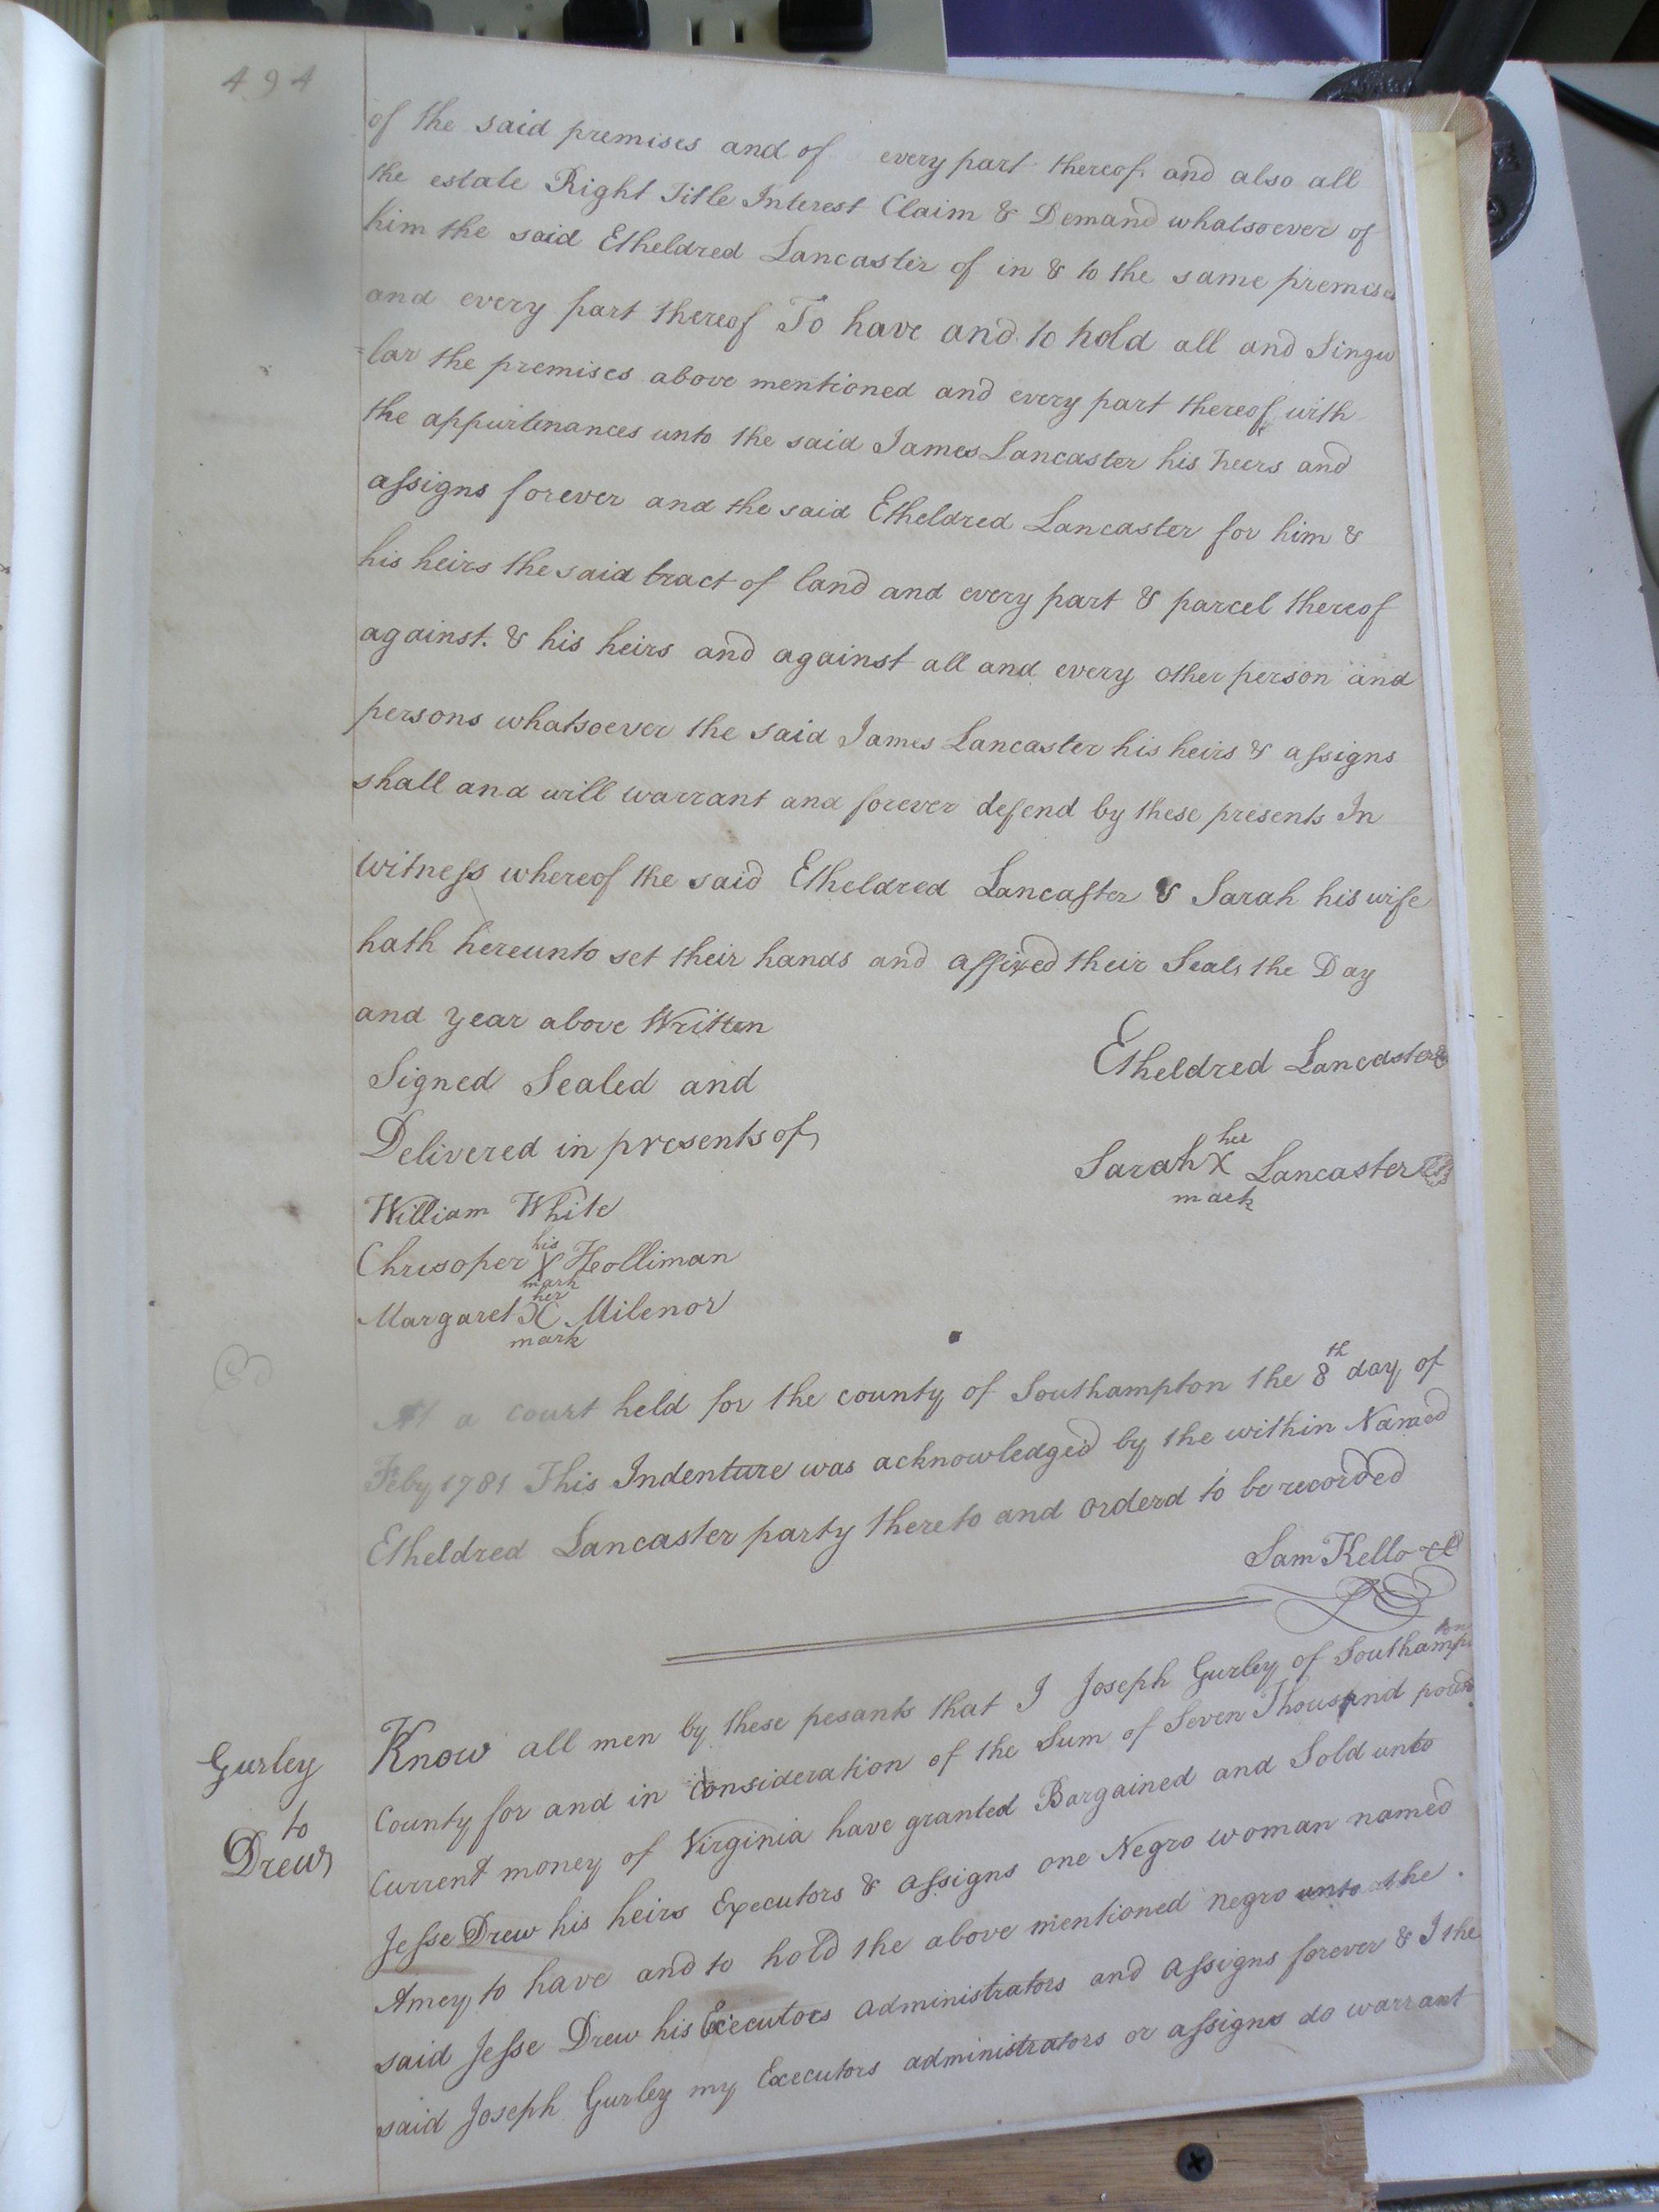 494
of the said premises and of every part thereof and also all
the estate Right Title Interest Claim & Demand whatsoever of
him the said Etheldred Lancaster of in & to the same premises
and every part thereof To have and to hold all and Singu
=lar the premises above mentioned and every part thereof with
the appurtenances unto the said James Lancaster his heirs and
assigns forever and the said Etheldred Lancaster for him &
his heirs the said tract of land and every part & parcel thereof
against. & his heirs and against all and every other person and
persons whatsoever the said James Lancaster his heirs & assigns
shall and will warrant and forever defend by these presents In
Witness whereof the said Etheldred Lancaster & Sarah his wife
hath hereunto set their hands and affixed their Seals the Day
and year above Written
Etheldred Lancaster
Signed Sealed and
Delivered in presents of
Sarah her X mark Lancaster
William White
Chrisoper his X mark Holliman
Margaret her X mark Milenor
At a court held for the county of Southampton the 8th day of
Feby 1781 This Indenture was acknowledged by the within Named
Etheldred Lancaster party thereto and orderd to be recorded
Sam Kello
Gurley
to
Drew
Know all men by these pesants that I Joseph Gurley of Southampton
County for and in Consideration of the Sum of Seven Thousand pound
Current money of Virginia have granted Bargained and Sold unto
Jesse Drew his heirs Executors & assigns one Negro woman named
Amey to have and to hold the above mentioned negro unto the
said Jesse Drew his Executors administrators and assigns forever & I the
said Joseph Gurley my Executors administrators or assigns do warrant